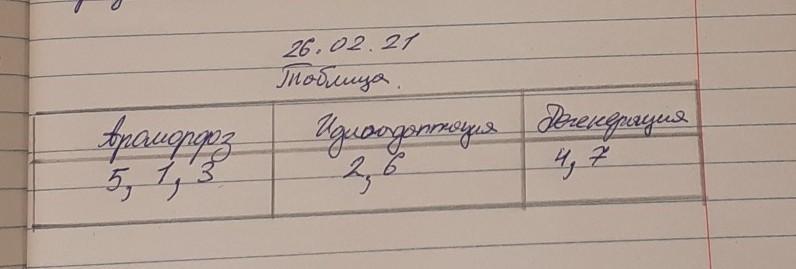 26.02.21
Таблица.
Ароморфоз Идиоадаптация Дегенерация
5, 1, 3 2, 6 4, 7